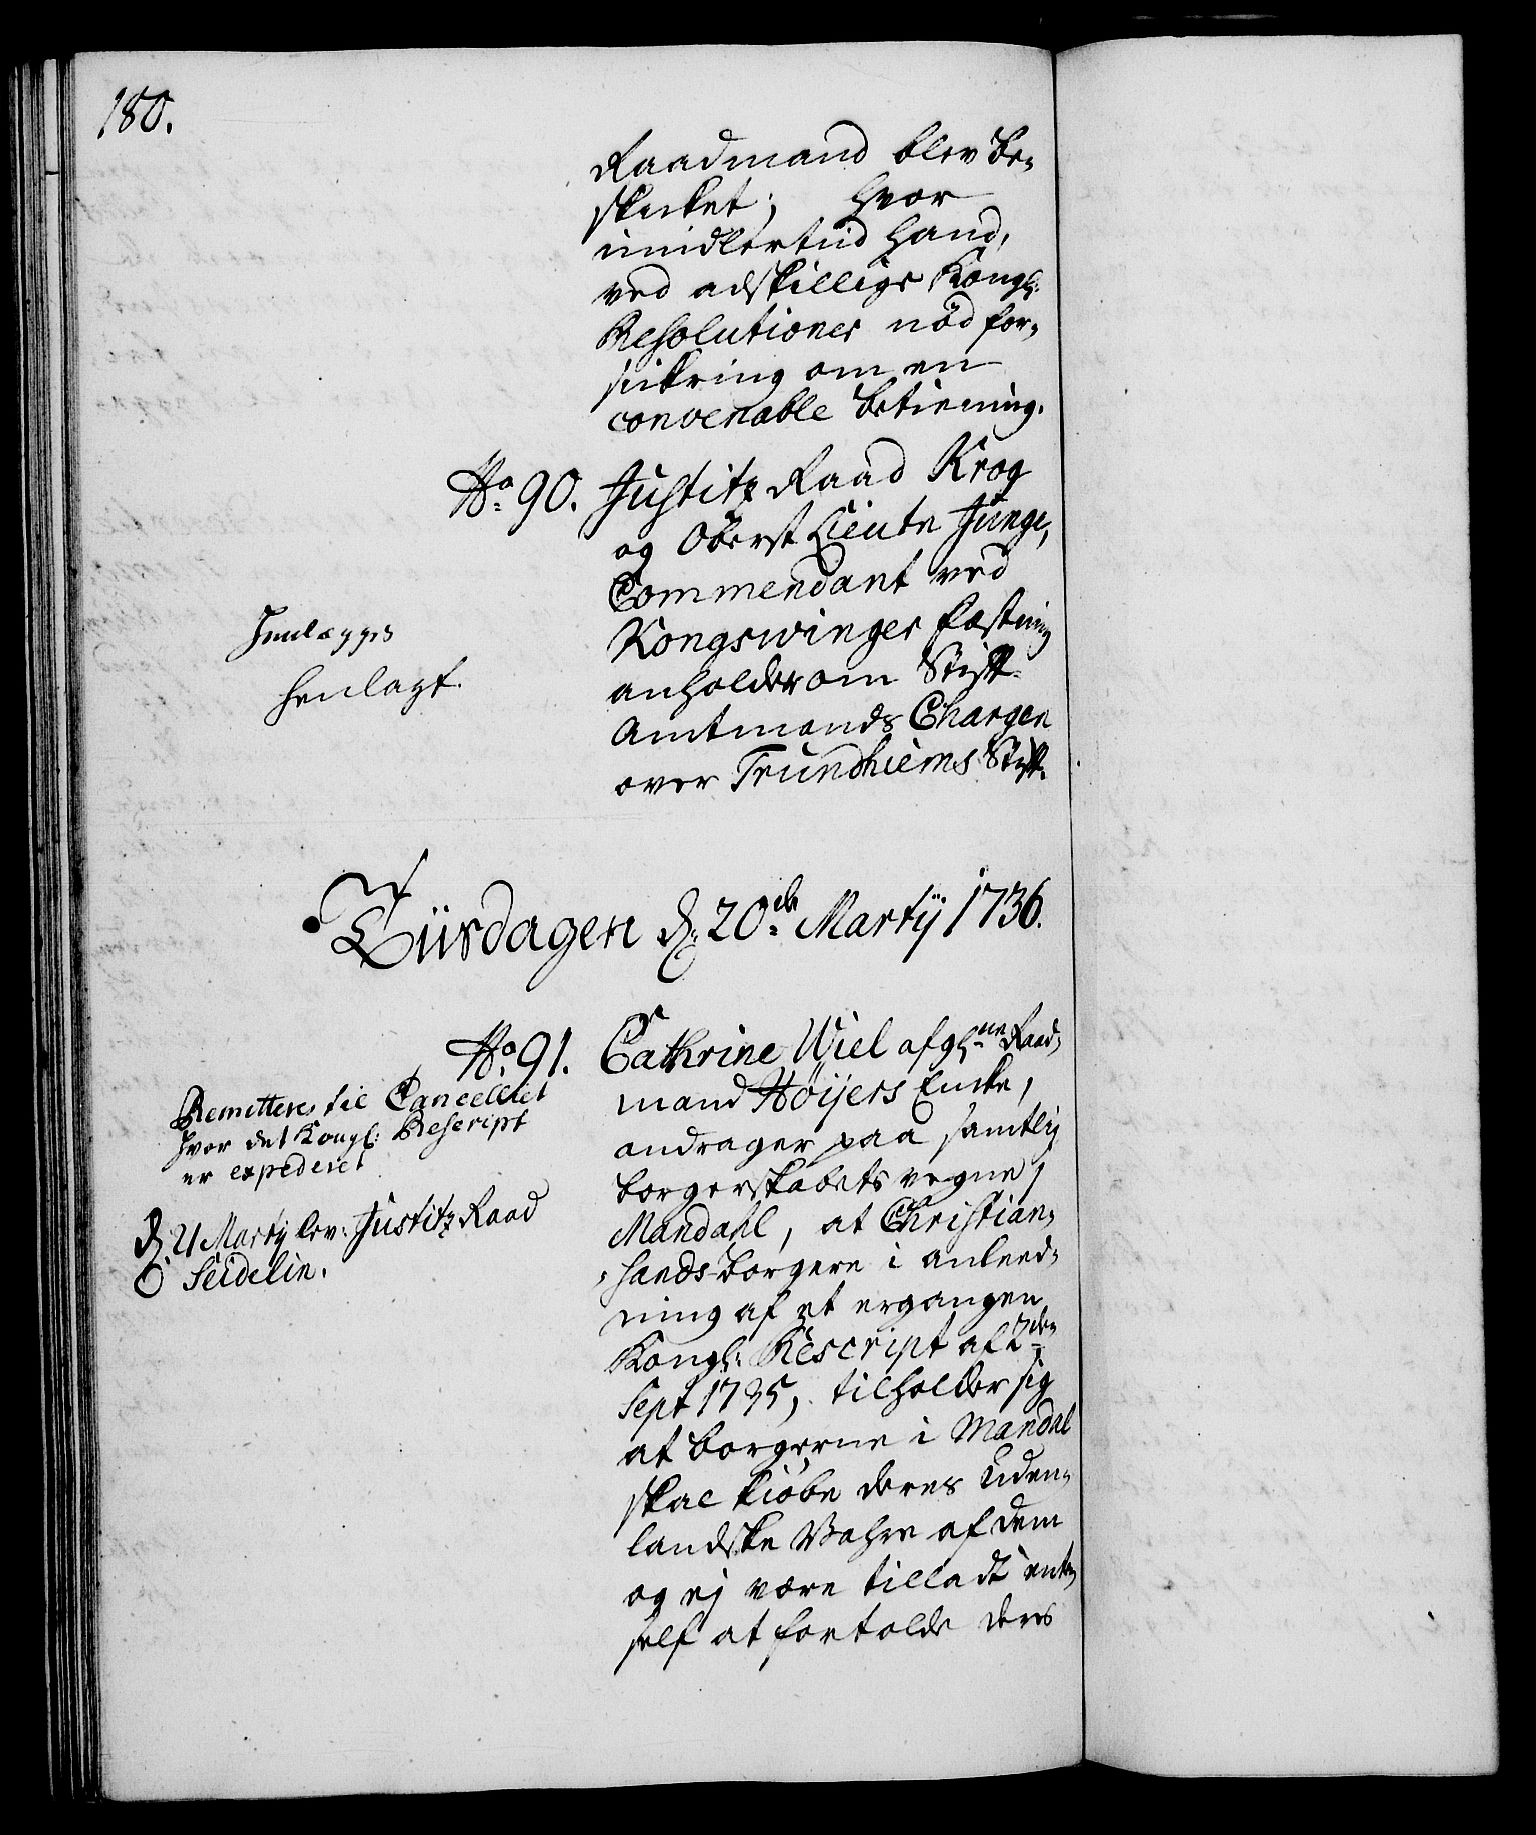 180.
Raadmand blev be-
skicket; hvor
imidlertiid hand,
ved adskillige Kongl:
Resolutioner nöd for-
sikring om en
convenable betiening.
No. 90. Justitz Raad Krog
og Oberst Lieutn Junge,
Commendant ved
Kongswinger Fæstning
anholder om Stift-
Amtmands Chargen
over Trundhiems Stift.
Henlægges
Henlagt.
Tiirsdagen d. 20de Martij 1736.
No. 91. Cathrine Wiel afgl:ne Raad-
mand Höijers Encke,
andrager paa samtlig
borgerskabets vegne i
Mandahl, at Christian-
sands borgere i anleed-
ning af et ergangen
Kongl: Rescript af 2den
Sept 1735, tilholder sig
at borgerne i Mandal
skal kiöbe deres Uden-
landske Vahre af dem
og ej være tilladt
self at fortolde deres
Remitteres til Cancelliet
hvor det Kongl: Rescript
er expederet
d. 21 Martij lev: Justitz Raad
Seidelin.